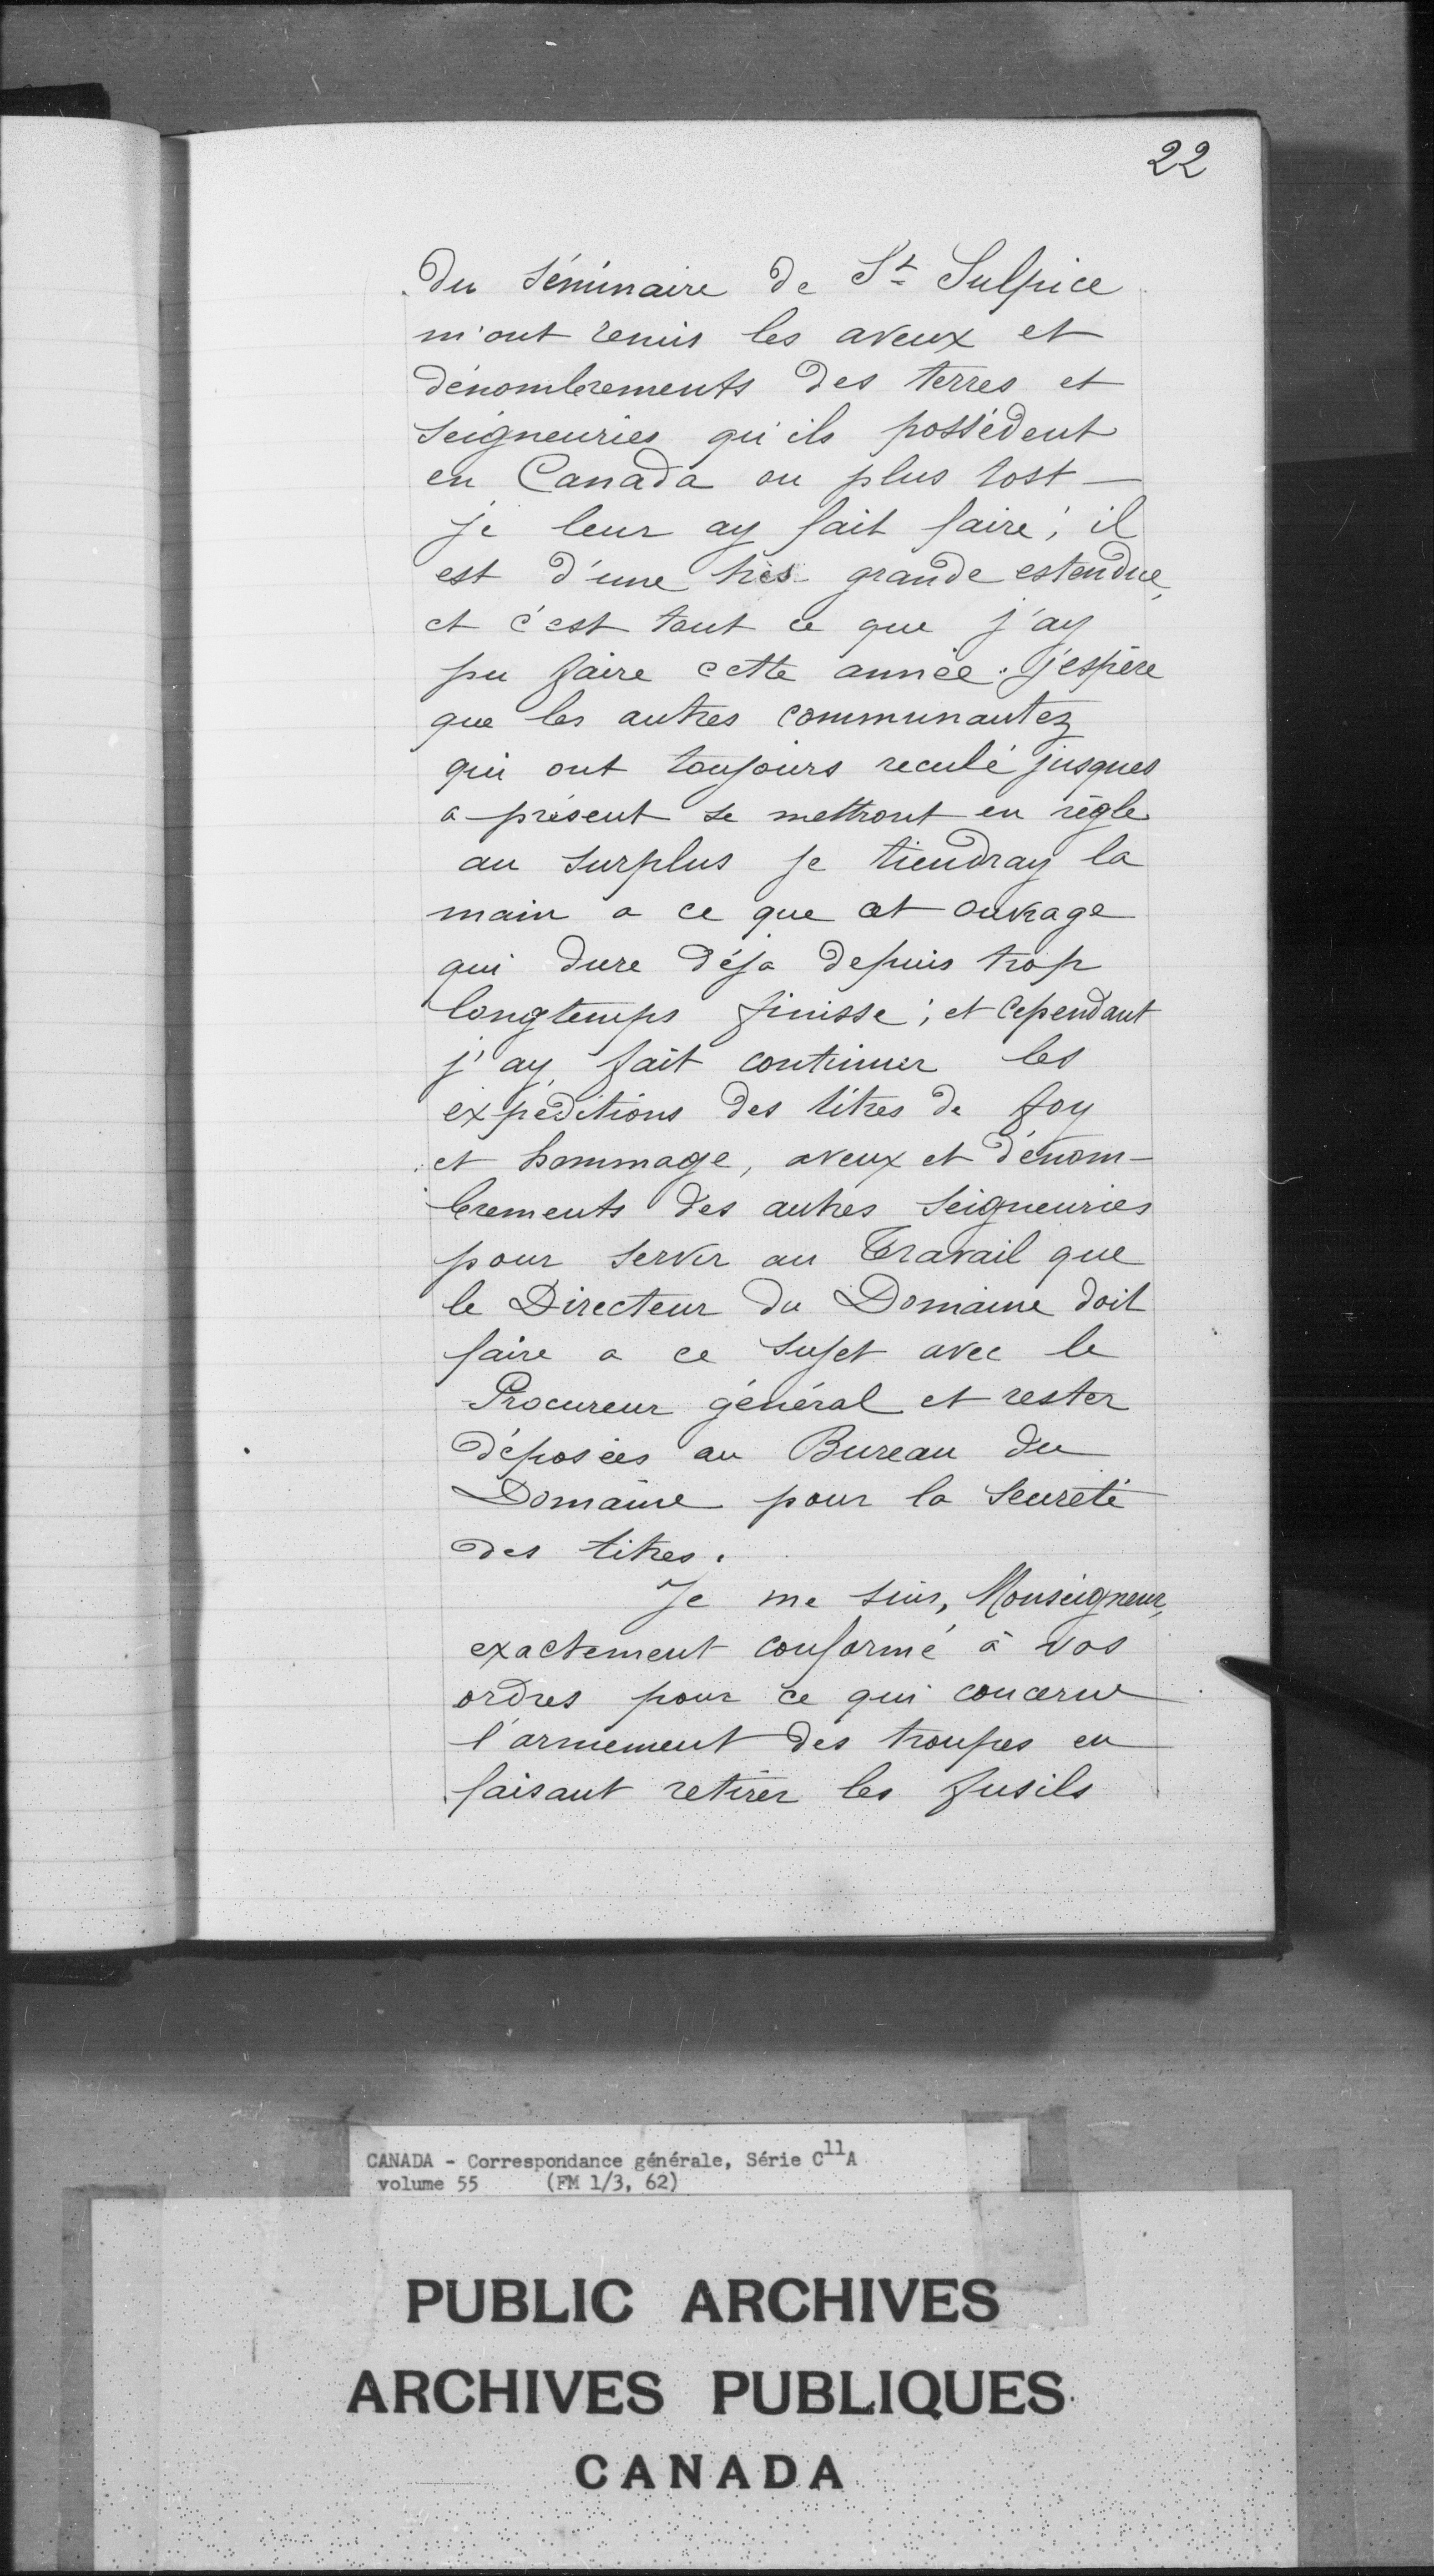 22
du séminaire de St Sulpice
m'ont remis les aveux et
dénombrements des terres et
seigneuries qu'ils possédent
en Canada ou plus tost —
je leur ay fait faire; il
est d'une très grande estendue,
et c'est tout ce que j'ay
pu faire cette année. j'espère
que les autres communautez
qui ont toujours reculé jusques
a présent se mettront en règle
au surplus je tiendray la
main a ce que cet ouvrage
qui dure déja depuis trop
longtemps finisse; et cependant
j'ay fait continuer les
expéditions des titres de foy
et hommage, aveux et dénom-
brements des autres seigneuries
pour servir au travail que
le Directeur du Domaine doit
faire a ce sujet avec le
Procureur général et rester
déposées au Bureau du
Domaine pour la seureté
des titres.
Je me suis, Monseigneur,
exactement conformé à vos
ordres pour ce qui concerne
l'armement des troupes en
faisant retirer les fusils
CANADA - Correspondance générale, Série C11A
volume 55 (FM 1/3, 62)
PUBLIC ARCHIVES
ARCHIVES PUBLIQUES
CANADA